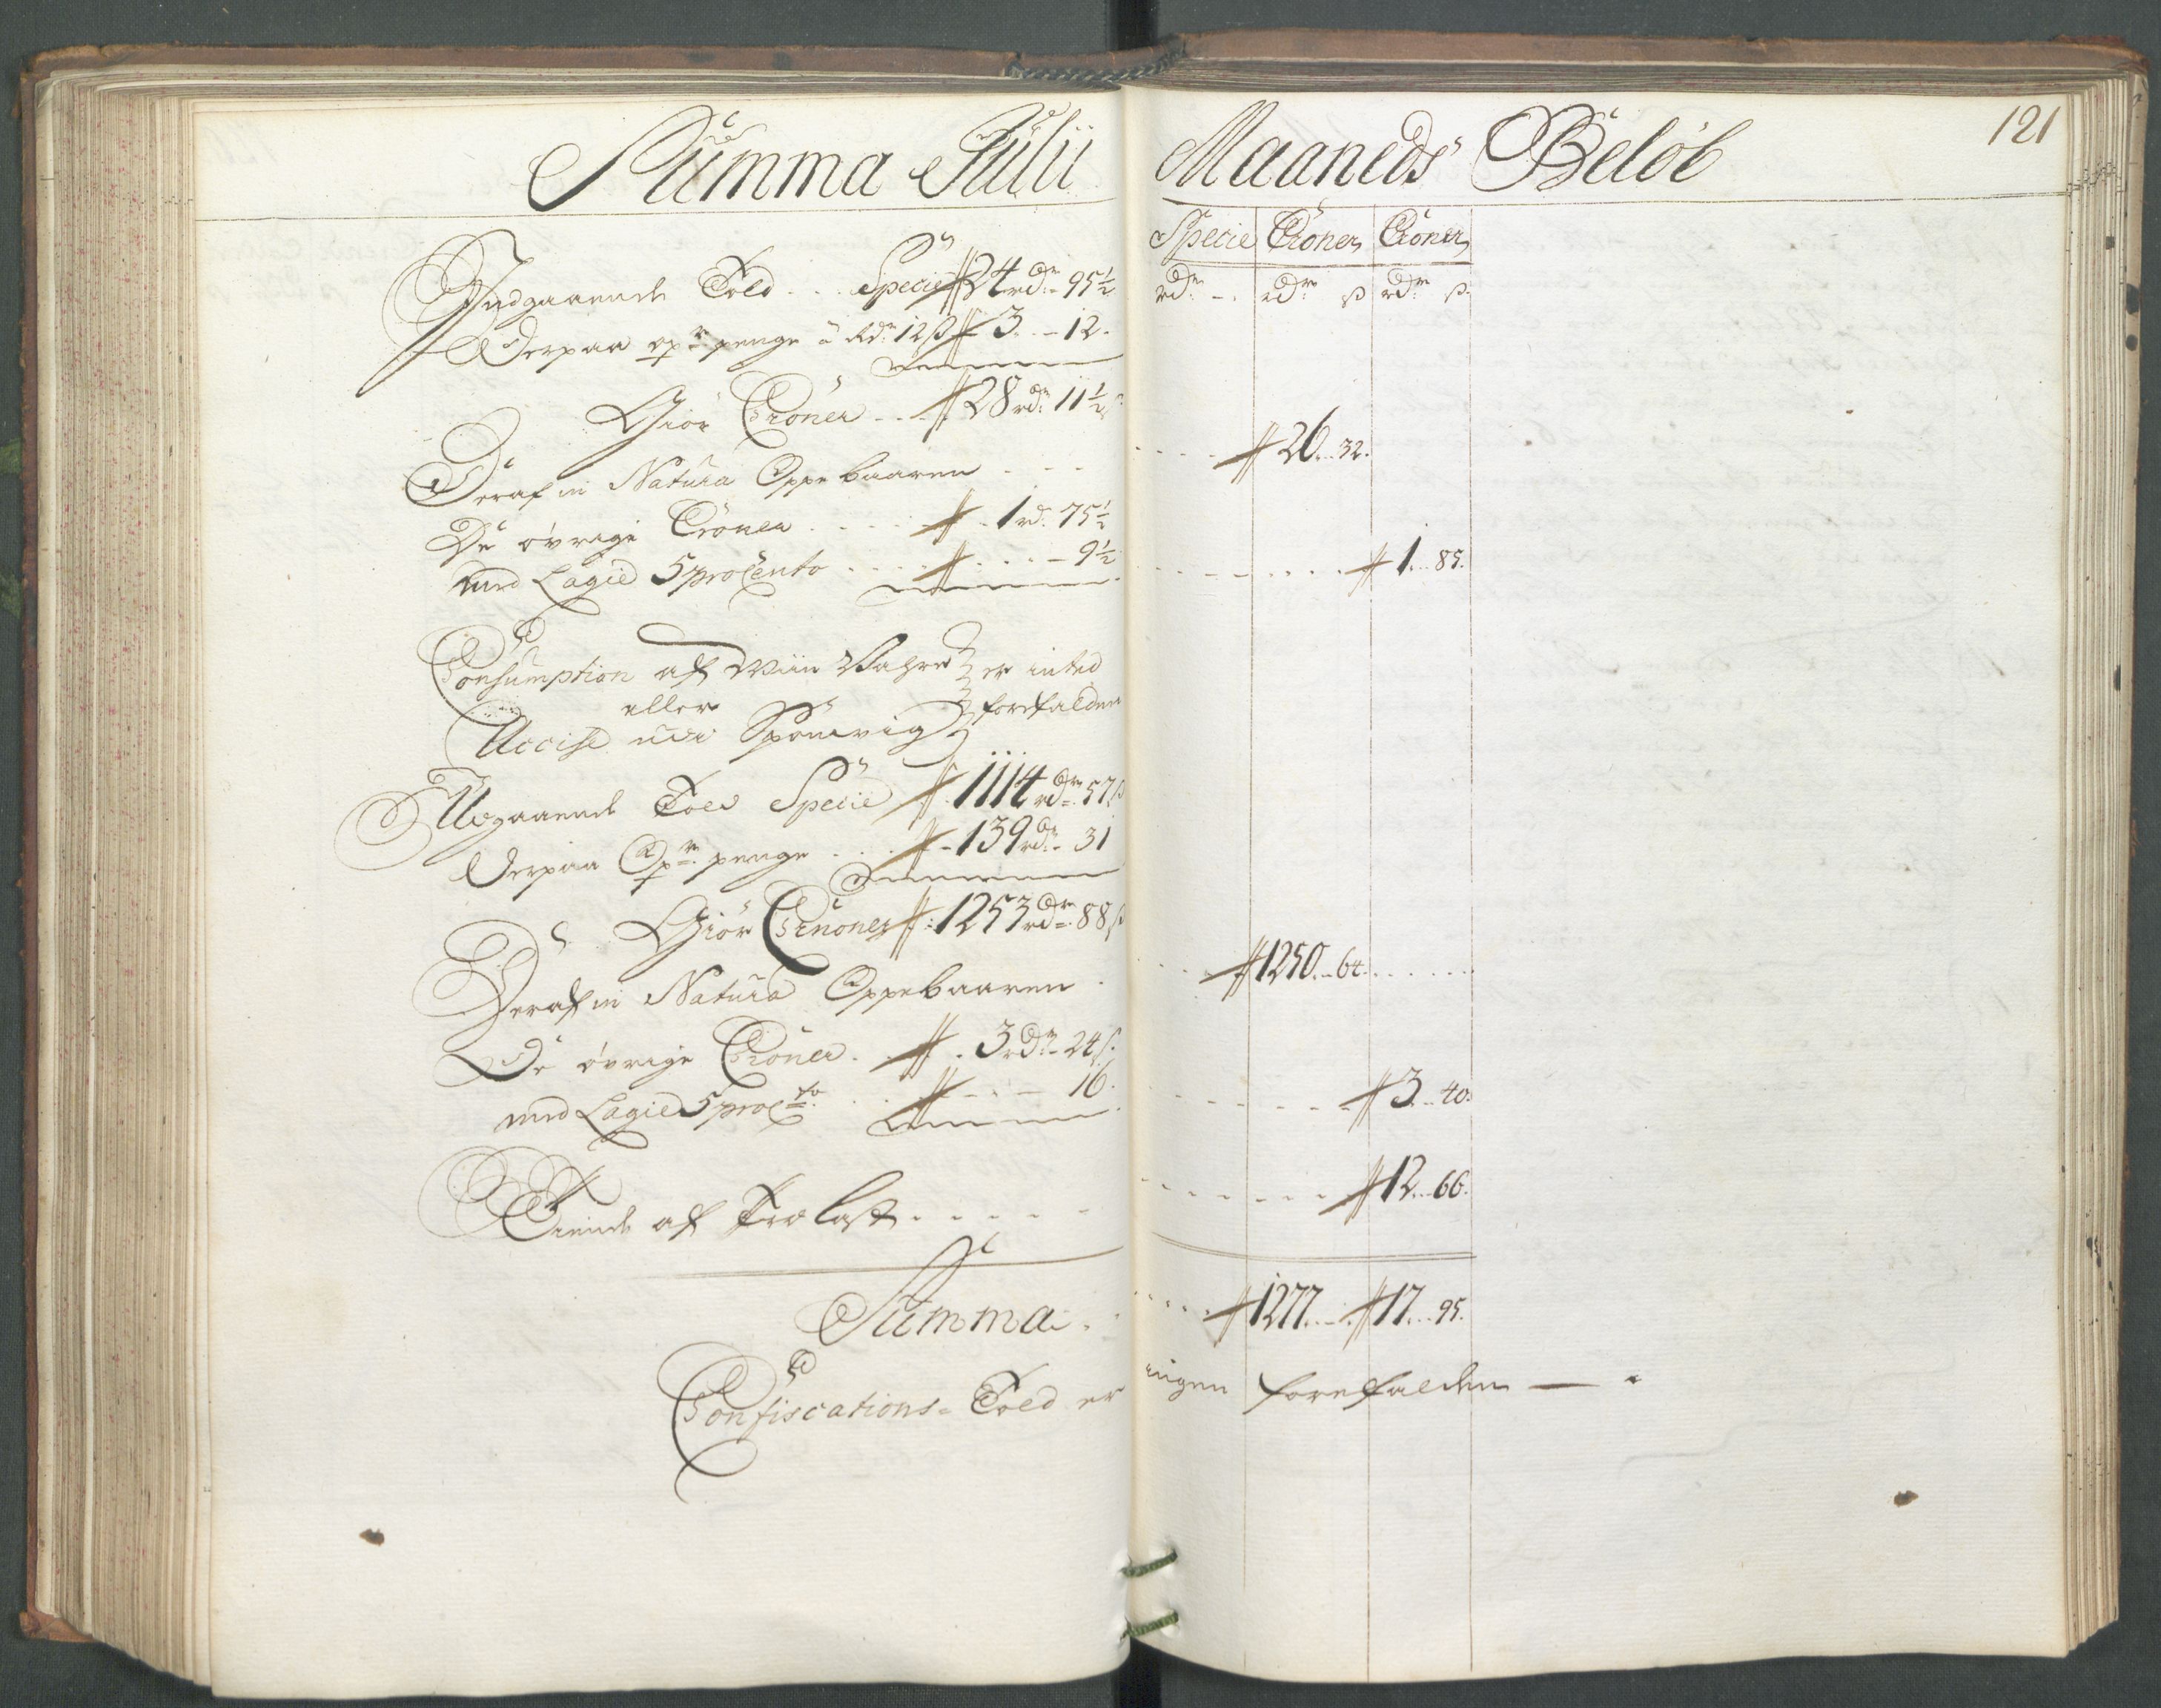 121
Summa Julii Maaneds Beløb
Specie Croner Croner
rdr - rdr ß rdr ß
Indgaaende Told . . . Specie 24 rdr 95½
Derpaa opr penge à Rdr 12 ß 3 - 12.
Giør Croner . . . 28 rdr 11½
Deraf in Natura Oppebaaren . . . 26 . . 32.
De øvrige Croner . . . . 1 rd. 75½
med Lagie 5 procento . . . . - 9½ . . . . 1 . . 85.
Consumption af Wiin Vahre er inted
eller forefalden
Accise
Udgaaende Told Specie 1114 rdr 57 ß
Derpaa Opr penge . . . 139 rdr 31
Giør Croner 1253 rdr 88 ß
Deraf in Natura Oppebaaren . . . 1250 . . 64.
De øvrige Croner . . 3 rdr 24 ß.
med Lagie 5 procto . . . - 16. . . . . 3 . . 40.
Tiende af Træ last . . . . . 12 . . 66.
Summa . . . . 1277 . . - . 17 . . 95.
Confiscations-Told er ingen forefalden —